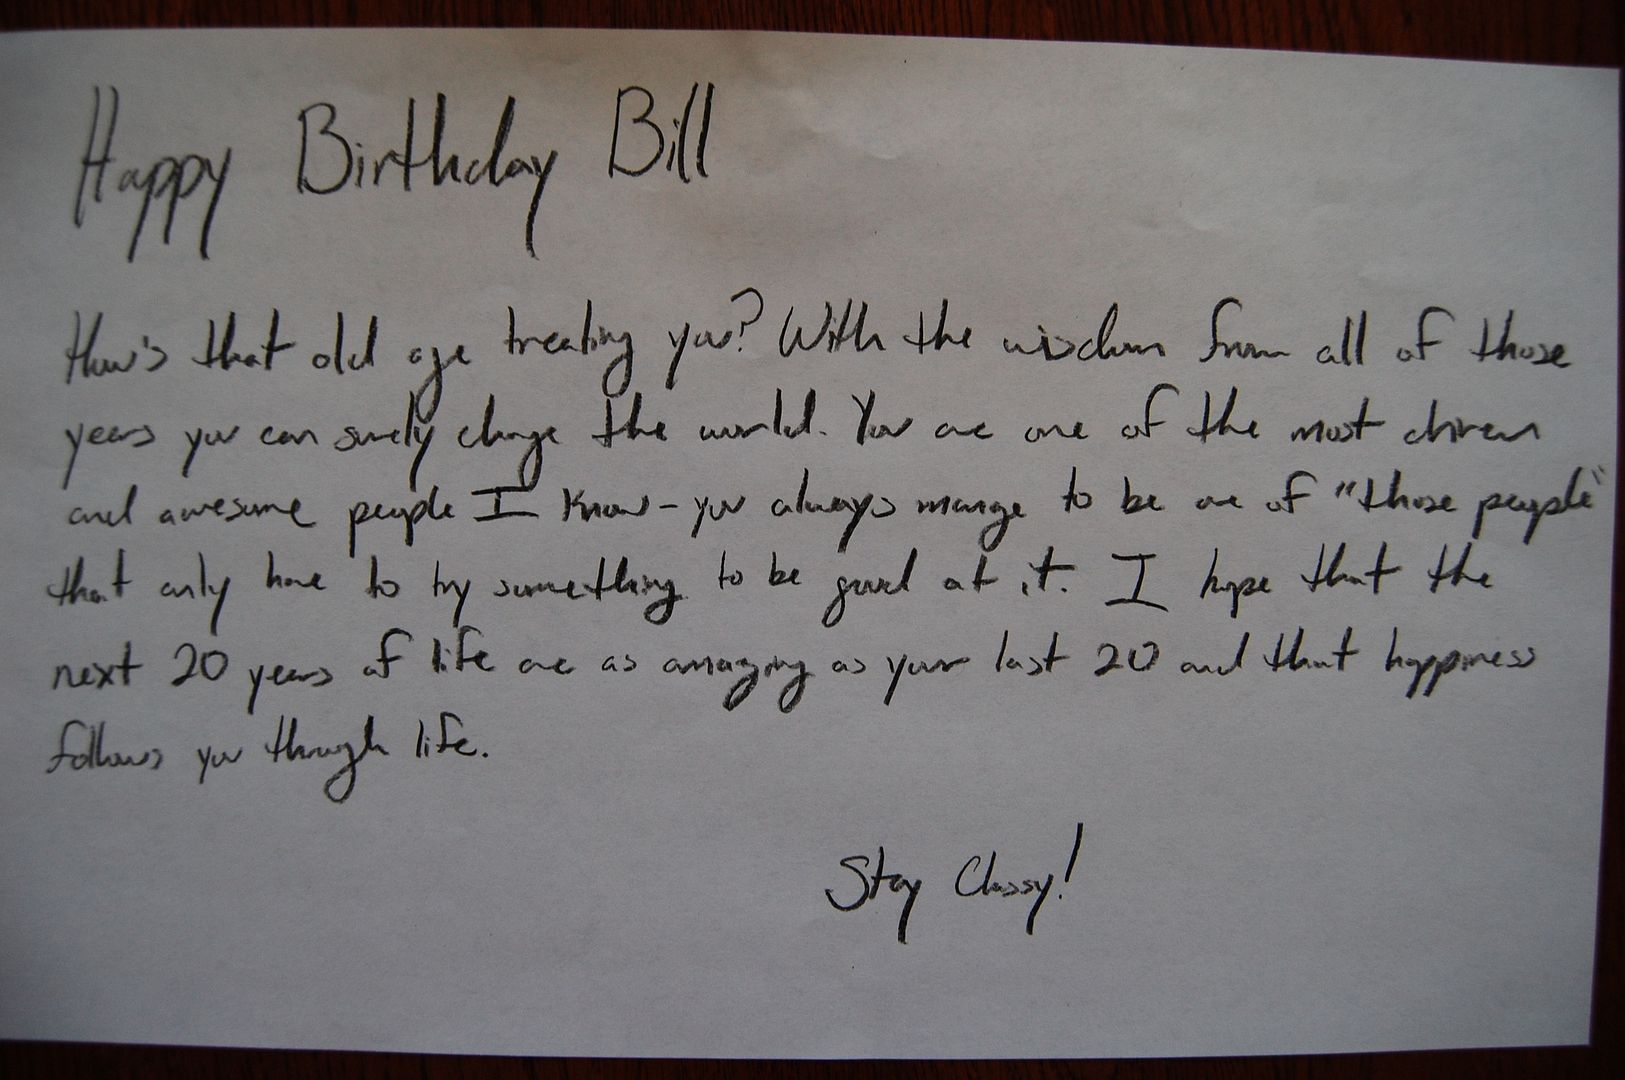 Happy Birthday Bill
How's that old age treating you? With the wisdom from all of those
years you can surely change the world. You are one of the most driven
and awesome people I know - you always mange to be one of "those people"
that only have to try something to be good at it. I hope that the
next 20 years of life are as amazing as your last 20 and that happiness
follows you through life.
Stay Classy!